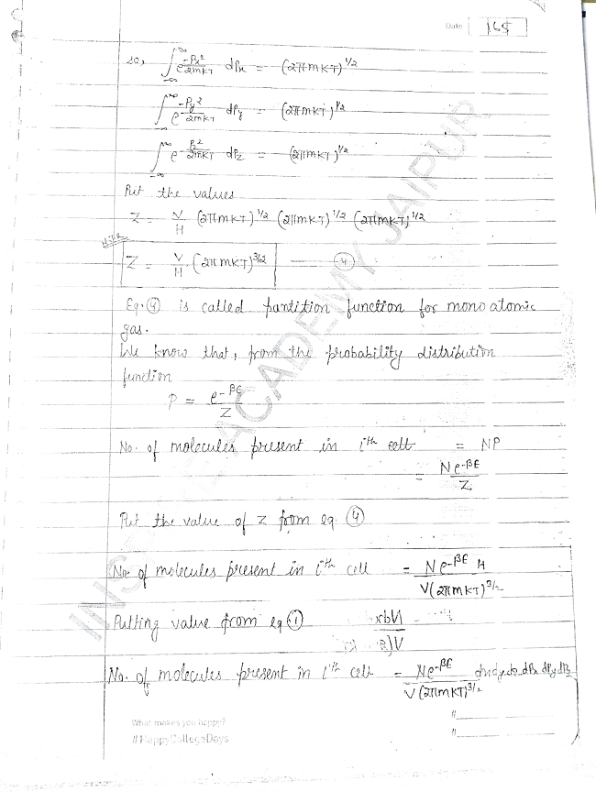 Date 165
so, ∫_{-∞}^{+∞} e^{-Px²/2mKT} dPx = (2πmKT)^{1/2}
∫_{-∞}^{+∞} e^{-Py²/2mKT} dPy = (2πmKT)^{1/2}
∫_{-∞}^{+∞} e^{-Pz²/2mKT} dPz = (2πmKT)^{1/2}
Put the values
Z = V/H (2πmKT)^{1/2} (2πmKT)^{1/2} (2πmKT)^{1/2}
Z = V/H . (2πmKT)^{3/2} —— ④
Eq. ④ is called partition function for mono atomic
gas.
We know that, from the probability distribution
function
P = e^{-βE}/Z
No. of molecules present in ith cell = NP
= Ne^{-βE}/Z
Put the value of Z from eq ④
No of molecules present in ith cell = Ne^{-βE} H / V(2πmKT)^{3/2}
Putting value from eq ①
No. of molecules present in ith cell = Ne^{-βE} / V(2πmKT)^{3/2} dxdydz dPx dPy dPz
What makes you happy?
#HappyCollegeDays
#
#
ACADEMY JAIPUR